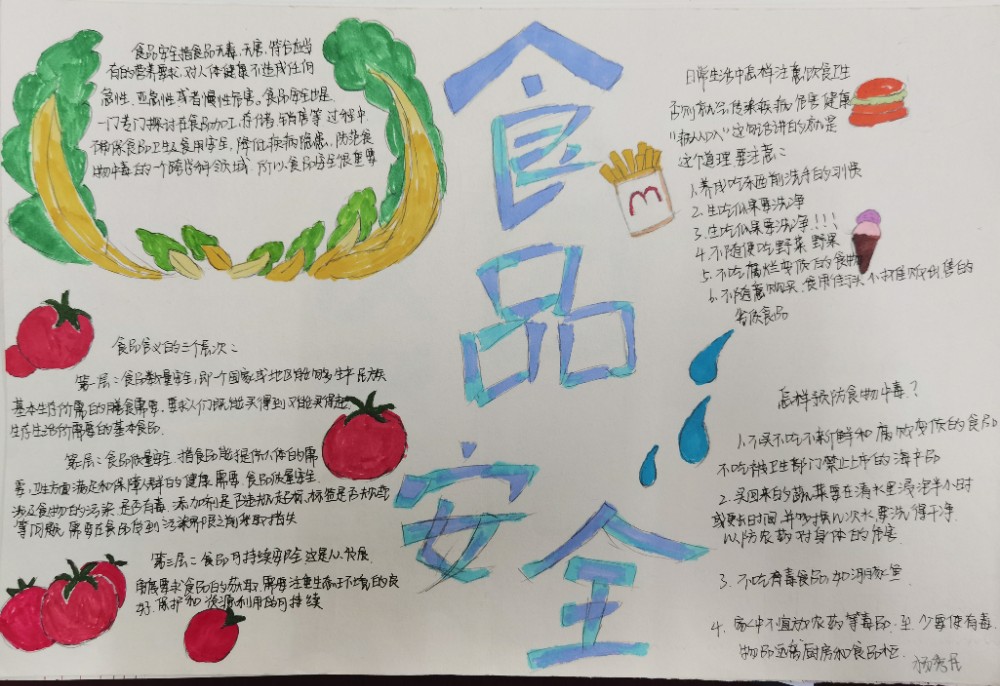 食品安全
食品安全指食品无毒、无害,符合应当
有的营养要求,对人体健康不造成任何
急性、亚急性或者慢性危害。食品安全也是
一门专门探讨在食品加工、存储、销售等过程中
确保食品卫生及食用安全,降低疾病隐患,防范食
物中毒的一个跨学科领域,所以食品安全很重要
食品含义的三个层次:
第一层:食品数量安全,即一个国家或地区能够生产民族
基本生存所需的膳食需要,要求人们既能买得到又能买得起
生存生活所需要的基本食品。
第二层:食品质量安全,指食品能提供人体的需
要,卫生方面满足和保障人群的健康需要,食品质量安全
涉及食物的污染 是否有毒 添加剂是否违规超标 标签是否规范
等问题,需要在食品受到污染界限之前采取措失
第三层:食品可持续安全 这是从发展
角度要求食品的获取,需要注重生态环境的良
好,保护和资源利用的可持续
日常生活中怎样注意饮食卫生
否则就会传染疾病,危害健康
"病从口入"这句话讲的就是
这个道理 要注意:
1.养成吃东西前洗手的习惯
2.生吃瓜果要洗净
3.生吃瓜果要洗净!!!
4.不随便吃野菜 野果
5.不吃腐烂变质的食物
6.不随意购买、食用街头小摊贩出售的
劣质食品
M
怎样预防食物中毒?
1.不买不吃不新鲜和腐败变质的食品
不吃被卫生部门禁止上市的海产品
2.买回来的蔬菜要在清水里浸泡半小时
或更长时间 并多换几次水 要洗得干净
以防农药对身体的危害
3.不吃有毒食品,如河豚鱼
4.家中不宜放农药等毒品,至少要使有毒
物品远离厨房和食品柜.